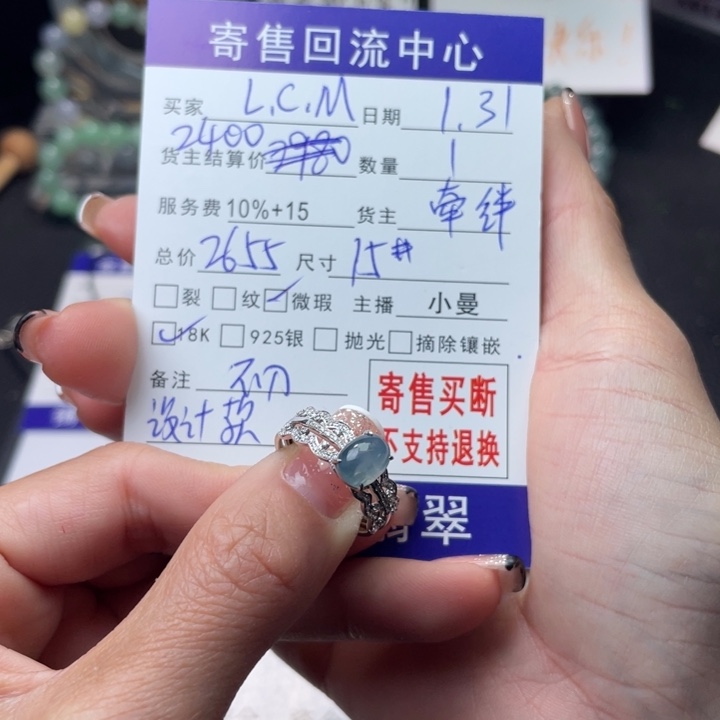 寄售回流中心
买家 L.C.M 日期 1.31
2400
货主结算价 2980 数量 1
服务费 10%+15 货主 牵绊
总价 2655 尺寸 15#
裂 纹 微瑕 主播 小曼
18K 925银 抛光 摘除镶嵌
备注 不刀
设计款
寄售买断
不支持退换
翡翠